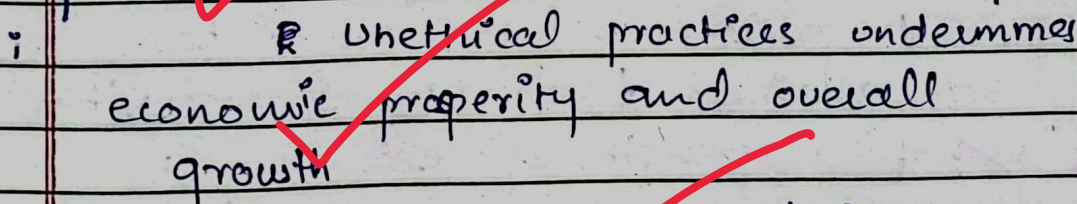 i Unethical practices undermmes
economic properity and overall
growth